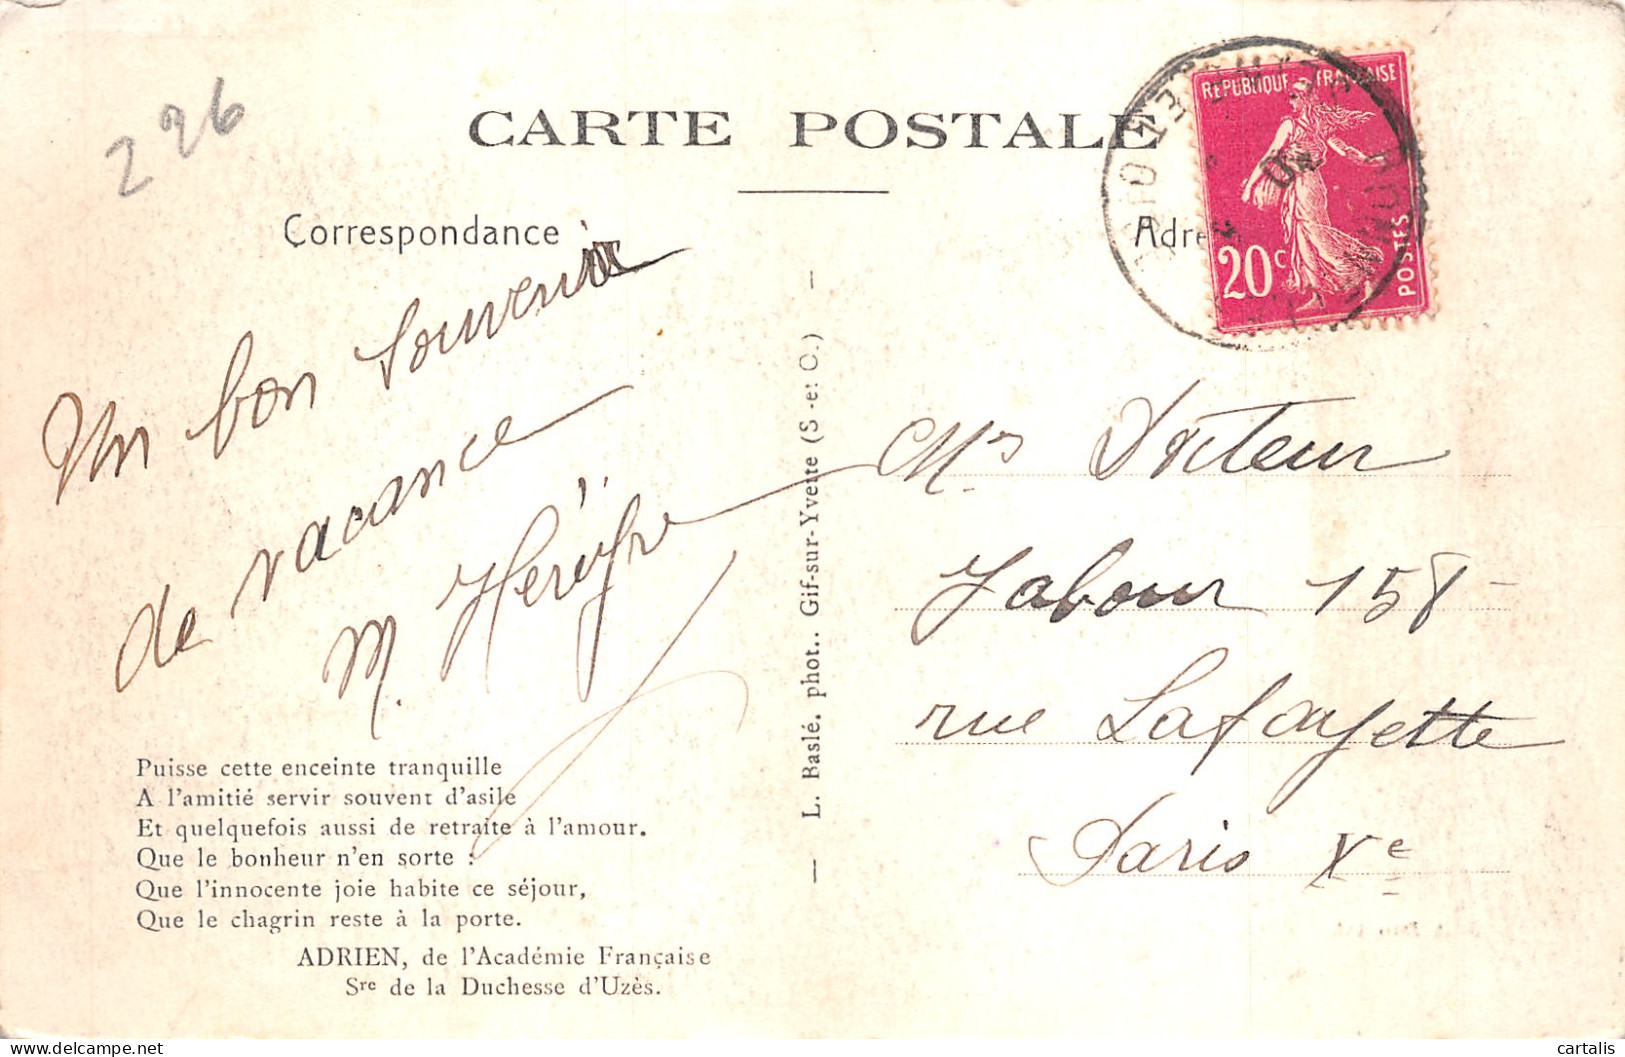 226
CARTE POSTALE
REPUBLIQUE FRANÇAISE
20c
POSTES
Correspondance
Un bon souvenir
de vacance
M.
Puisse cette enceinte tranquille
A l'amitié servir souvent d'asile
Et quelquefois aussi de retraite à l'amour.
Que le bonheur n'en sorte :
Que l'innocente joie habite ce séjour,
Que le chagrin reste à la porte.
ADRIEN, de l'Académie Française
Sre de la Duchesse d'Uzès.
— L. Baslé, phot.. Gif-sur-Yvette (S.-et O.) —
Mr
158
rue Lafayette
Paris Xe
cartalis